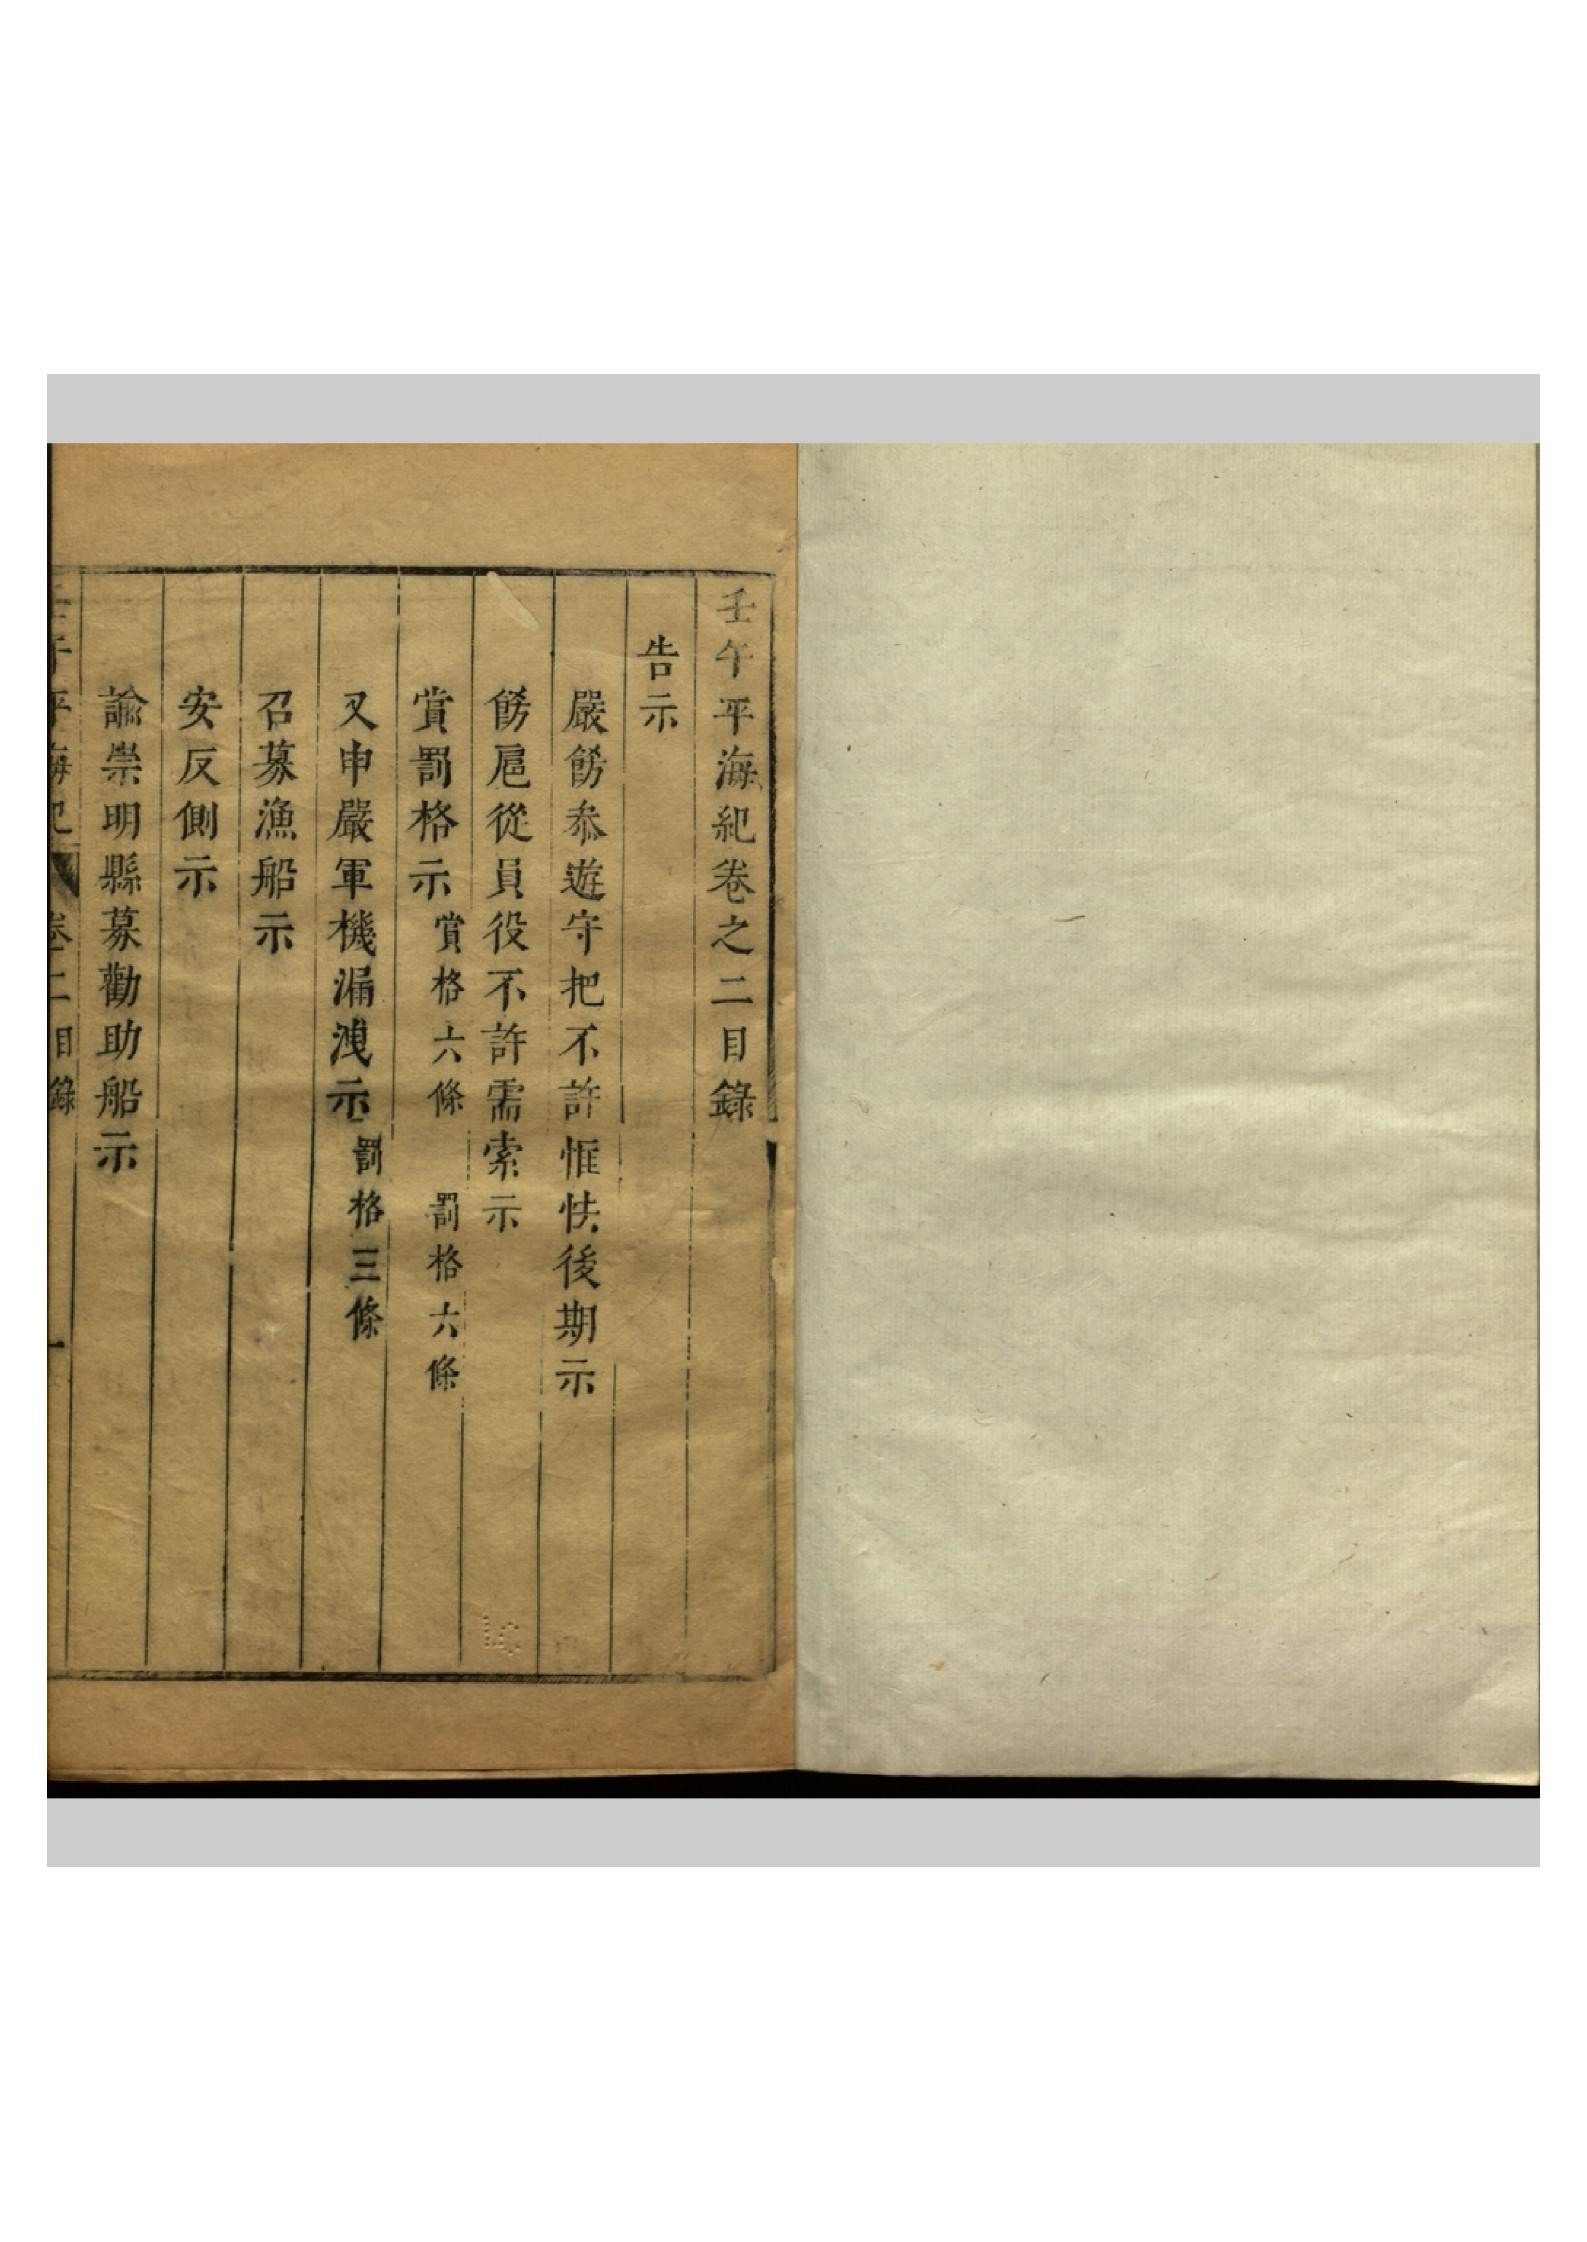 壬午平海紀卷之二目錄
告示
嚴餝叅遊守把不許恇怯後期示
餝扈從員役不許需索示
賞罰格示 賞格六條 罰格六條
又申嚴軍機漏洩示 罰格三條
召募漁船示
安反側示
諭崇明縣募勸助船示
壬午平海紀 卷二目錄 一